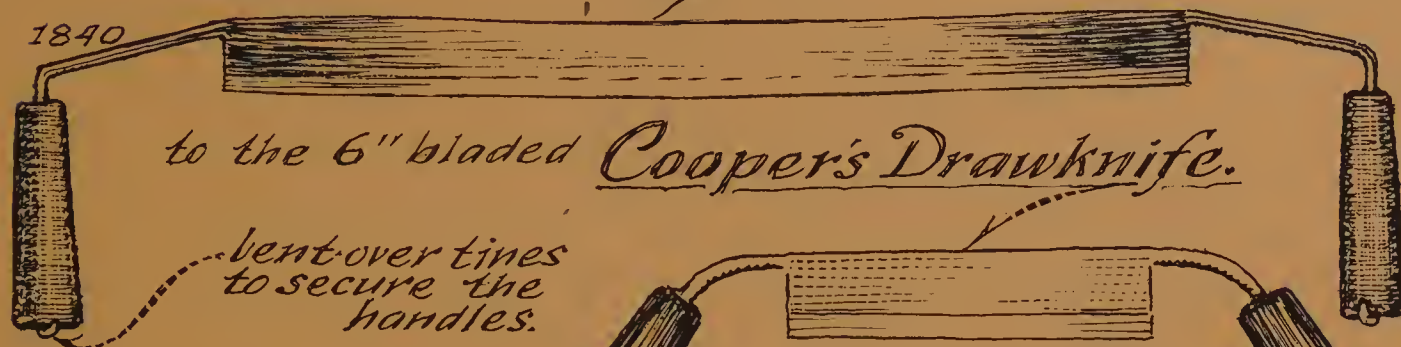 1840
to the 6" bladed Cooper's Drawknife.
bent-over tines
to secure the
handles.